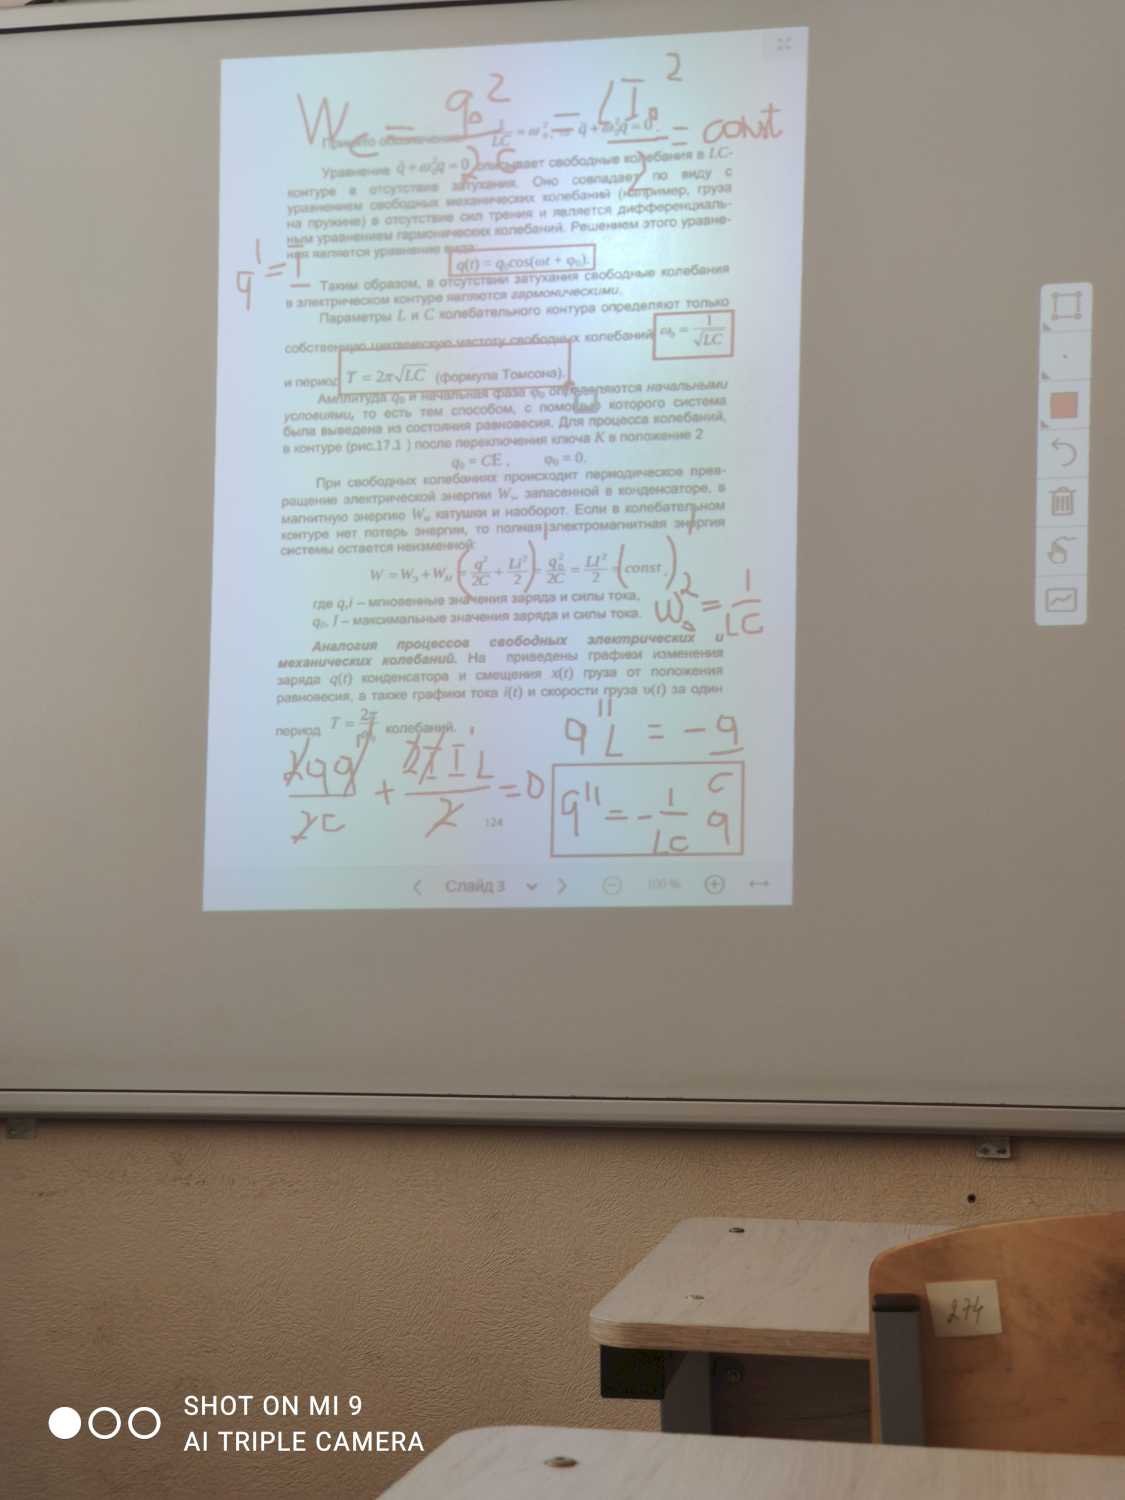 W_C = q₀² / 2C = LI₀² / 2 = const
1/LC = ω₀², q̈ + ω₀²q = 0.
Уравнение q̈ + ω₀²q = 0 описывает свободные колебания в LC-
контуре в отсутствие затухания. Оно совпадает по виду с
уравнением свободных механических колебаний (например, груза
на пружине) в отсутствие сил трения и является дифференциаль-
ным уравнением гармонических колебаний. Решением этого уравне-
ния является уравнение вида:
q' = I
q(t) = q₀cos(ωt + φ₀).
Таким образом, в отсутствии затухания свободные колебания
в электрическом контуре являются гармоническими.
Параметры L и C колебательного контура определяют только
собственную циклическую частоту свободных колебаний ω₀ = 1/√LC
и период T = 2π√LC (формула Томсона).
Амплитуда q₀ и начальная фаза φ₀ определяются начальными
условиями, то есть тем способом, с помощью которого система
была выведена из состояния равновесия. Для процесса колебаний,
в контуре (рис.17.1 ) после переключения ключа K в положение 2
q₀ = CE , φ₀ = 0.
При свободных колебаниях происходит периодическое прев-
ращение электрической энергии Wэ, запасенной в конденсаторе, в
магнитную энергию Wм катушки и наоборот. Если в колебательном
контуре нет потерь энергии, то полная электромагнитная энергия
системы остается неизменной:
W = Wэ + Wм = (q²/2C + Li²/2)' = q₀²/2C = LI²/2 = (const.)'
где q,i – мгновенные значения заряда и силы тока,
q₀, I – максимальные значения заряда и силы тока.
ω₀² = 1/LC
Аналогия процессов свободных электрических и
механических колебаний. На приведены графики изменения
заряда q(t) конденсатора и смещения x(t) груза от положения
равновесия, а также графики тока i(t) и скорости груза υ(t) за один
период T = 2π/ω₀ колебаний.
q''L = - q/C
2qq'/2C + 2I I' L/2 = 0
q'' = - 1/LC q
124
Слайд 3
100 %
274
SHOT ON MI 9
AI TRIPLE CAMERA